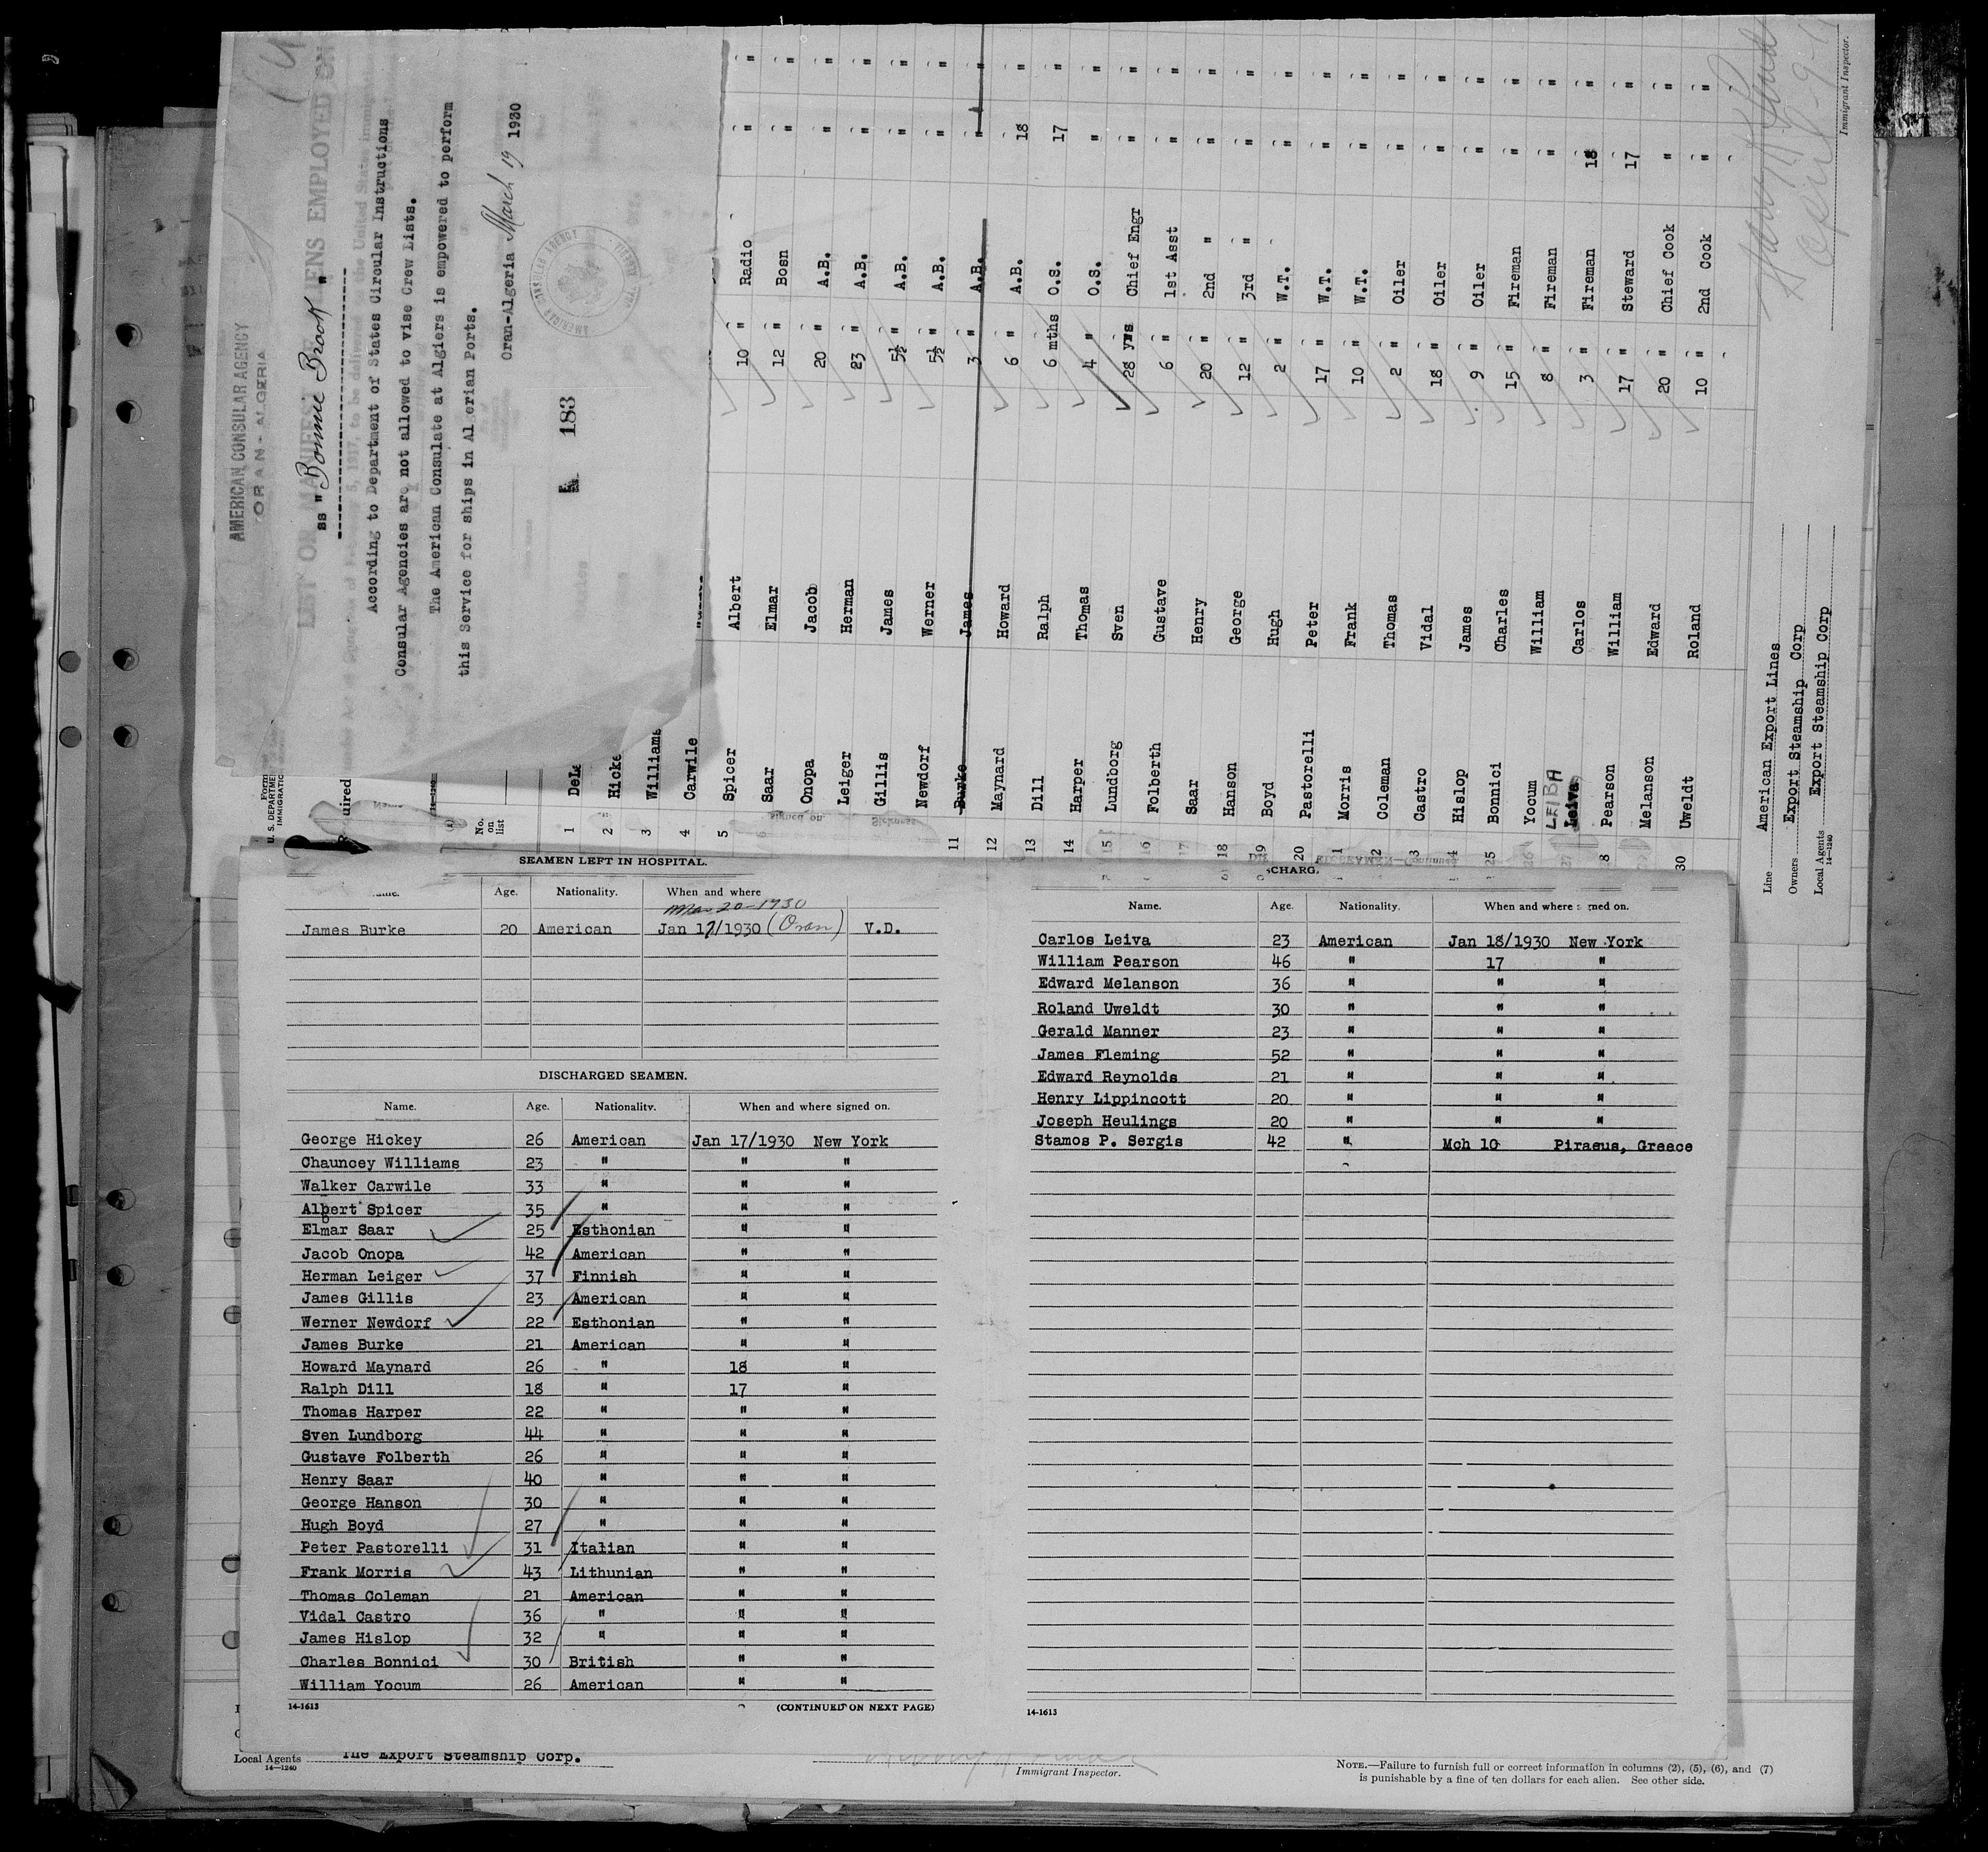 AMERICAN CONSULAR AGENCY
ORAN - ALGERIA
LIST OR MANIFEST
ALIENS EMPLOYED ON
ss " Bonnie Brook "
According to Department of States Circular Instructions
Consular Agencies are not allowed to vise Crew Lists.
The American Consulate at Algiers is empowered to perform
this Service for ships in Al erian Ports.
Oran-Algeria March 19 1930
AMERICAN CONSULAR AGENCY
183
Form
U. S. DEPARTME
IMMIGRATIO
uired
No. on list
1 DeLa
2 Hicke
3 Williams
4 Carwile
5 Spicer Albert 10 " Radio " "
6 Saar Elmar 12 " Bosn " "
Onopa Jacob 20 " A.B. " "
Leiger Herman 23 " A.B. " "
Gillis James 5½ " A.B. " "
Newdorf Werner 5½ " A.B. " "
11 Burke James 3 " A.B. " "
12 Maynard Howard 6 " A.B. 18 "
13 Dill Ralph 6 mths O.S. 17 "
14 Harper Thomas 4 " O.S. " "
15 Lundborg Sven 28 yrs Chief Engr " "
16 Folberth Gustave 6 " 1st Asst " "
17 Saar Henry 20 " 2nd " " "
18 Hanson George 12 " 3rd " " "
19 Boyd Hugh 2 " W.T. " "
20 Pastorelli Peter 17 " W.T. " "
1 Morris Frank 10 " W.T. " "
2 Coleman Thomas 2 " Oiler " "
3 Castro Vidal 18 " Oiler " "
4 Hislop James 9 " Oiler " "
25 Bonnici Charles 15 " Fireman " "
26 Yocum William 8 " Fireman " "
LEIBA
27 Leiva Carlos 3 " Fireman 18 "
8 Pearson William 17 " Steward 17 "
Melanson Edward 20 " Chief Cook " "
30 Uweldt Roland 10 " 2nd Cook " "
Line American Export Lines
Owners Export Steamship Corp
Local Agents Export Steamship Corp
14-1240
Immigrant Inspector.
SEAMEN LEFT IN HOSPITAL.
Age. Nationality. When and where
Mar 20-1930
James Burke 20 American Jan 17/1930 (Oran) V.D.
DISCHARGED SEAMEN.
Name. Age. Nationality. When and where signed on.
George Hickey 26 American Jan 17/1930 New York
Chauncey Williams 23 " " "
Walker Carwile 33 " " "
Albert Spicer 35 " " "
Elmar Saar 25 Esthonian " "
Jacob Onopa 42 American " "
Herman Leiger 37 Finnish " "
James Gillis 23 American " "
Werner Newdorf 22 Esthonian " "
James Burke 21 American " "
Howard Maynard 26 " 18 "
Ralph Dill 18 " 17 "
Thomas Harper 22 " " "
Sven Lundborg 44 " " "
Gustave Folberth 26 " " "
Henry Saar 40 " " "
George Hanson 30 " " "
Hugh Boyd 27 " " "
Peter Pastorelli 31 Italian " "
Frank Morris 43 Lithunian " "
Thomas Coleman 21 American " "
Vidal Castro 36 " " "
James Hislop 32 " " "
Charles Bonnici 30 British " "
William Yocum 26 American " "
14-1613
(CONTINUED ON NEXT PAGE)
SCHARG
Name. Age. Nationality. When and where signed on.
Carlos Leiva 23 American Jan 18/1930 New York
William Pearson 46 " 17 "
Edward Melanson 36 " " "
Roland Uweldt 30 " " "
Gerald Manner 23 " " "
James Fleming 52 " " "
Edward Reynolds 21 " " "
Henry Lippincott 20 " " "
Joseph Heulings 20 " " "
Stamos P. Sergis 42 " Mch 10 Piraeus, Greece
14-1613
Local Agents The Export Steamship Corp.
14-1240
Immigrant Inspector.
NOTE.—Failure to furnish full or correct information in columns (2), (5), (6), and (7)
is punishable by a fine of ten dollars for each alien. See other side.